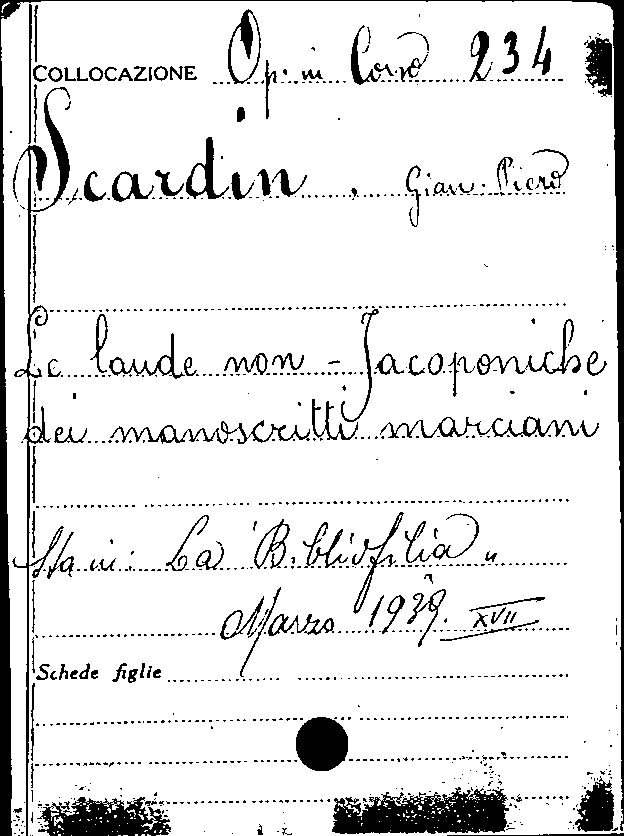 COLLOCAZIONE Op. in Corso 234
Scardin, Gian. Piero
Le laude non - Jacoponiche
dei manoscritti marciani
Sta in: La "Bibliofilia"
Marzo 1939. XVII
Schede figlie